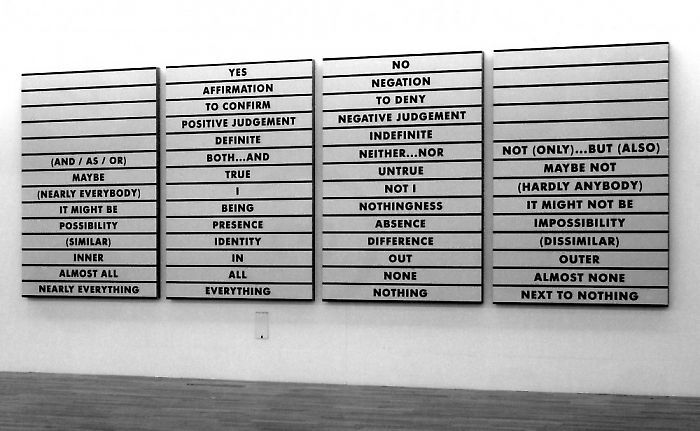 (AND / AS / OR)
MAYBE
(NEARLY EVERYBODY)
IT MIGHT BE
POSSIBILITY
(SIMILAR)
INNER
ALMOST ALL
NEARLY EVERYTHING
YES
AFFIRMATION
TO CONFIRM
POSITIVE JUDGEMENT
DEFINITE
BOTH...AND
TRUE
I
BEING
PRESENCE
IDENTITY
IN
ALL
EVERYTHING
NO
NEGATION
TO DENY
NEGATIVE JUDGEMENT
INDEFINITE
NEITHER...NOR
UNTRUE
NOT I
NOTHINGNESS
ABSENCE
DIFFERENCE
OUT
NONE
NOTHING
NOT (ONLY)...BUT (ALSO)
MAYBE NOT
(HARDLY ANYBODY)
IT MIGHT NOT BE
IMPOSSIBILITY
(DISSIMILAR)
OUTER
ALMOST NONE
NEXT TO NOTHING